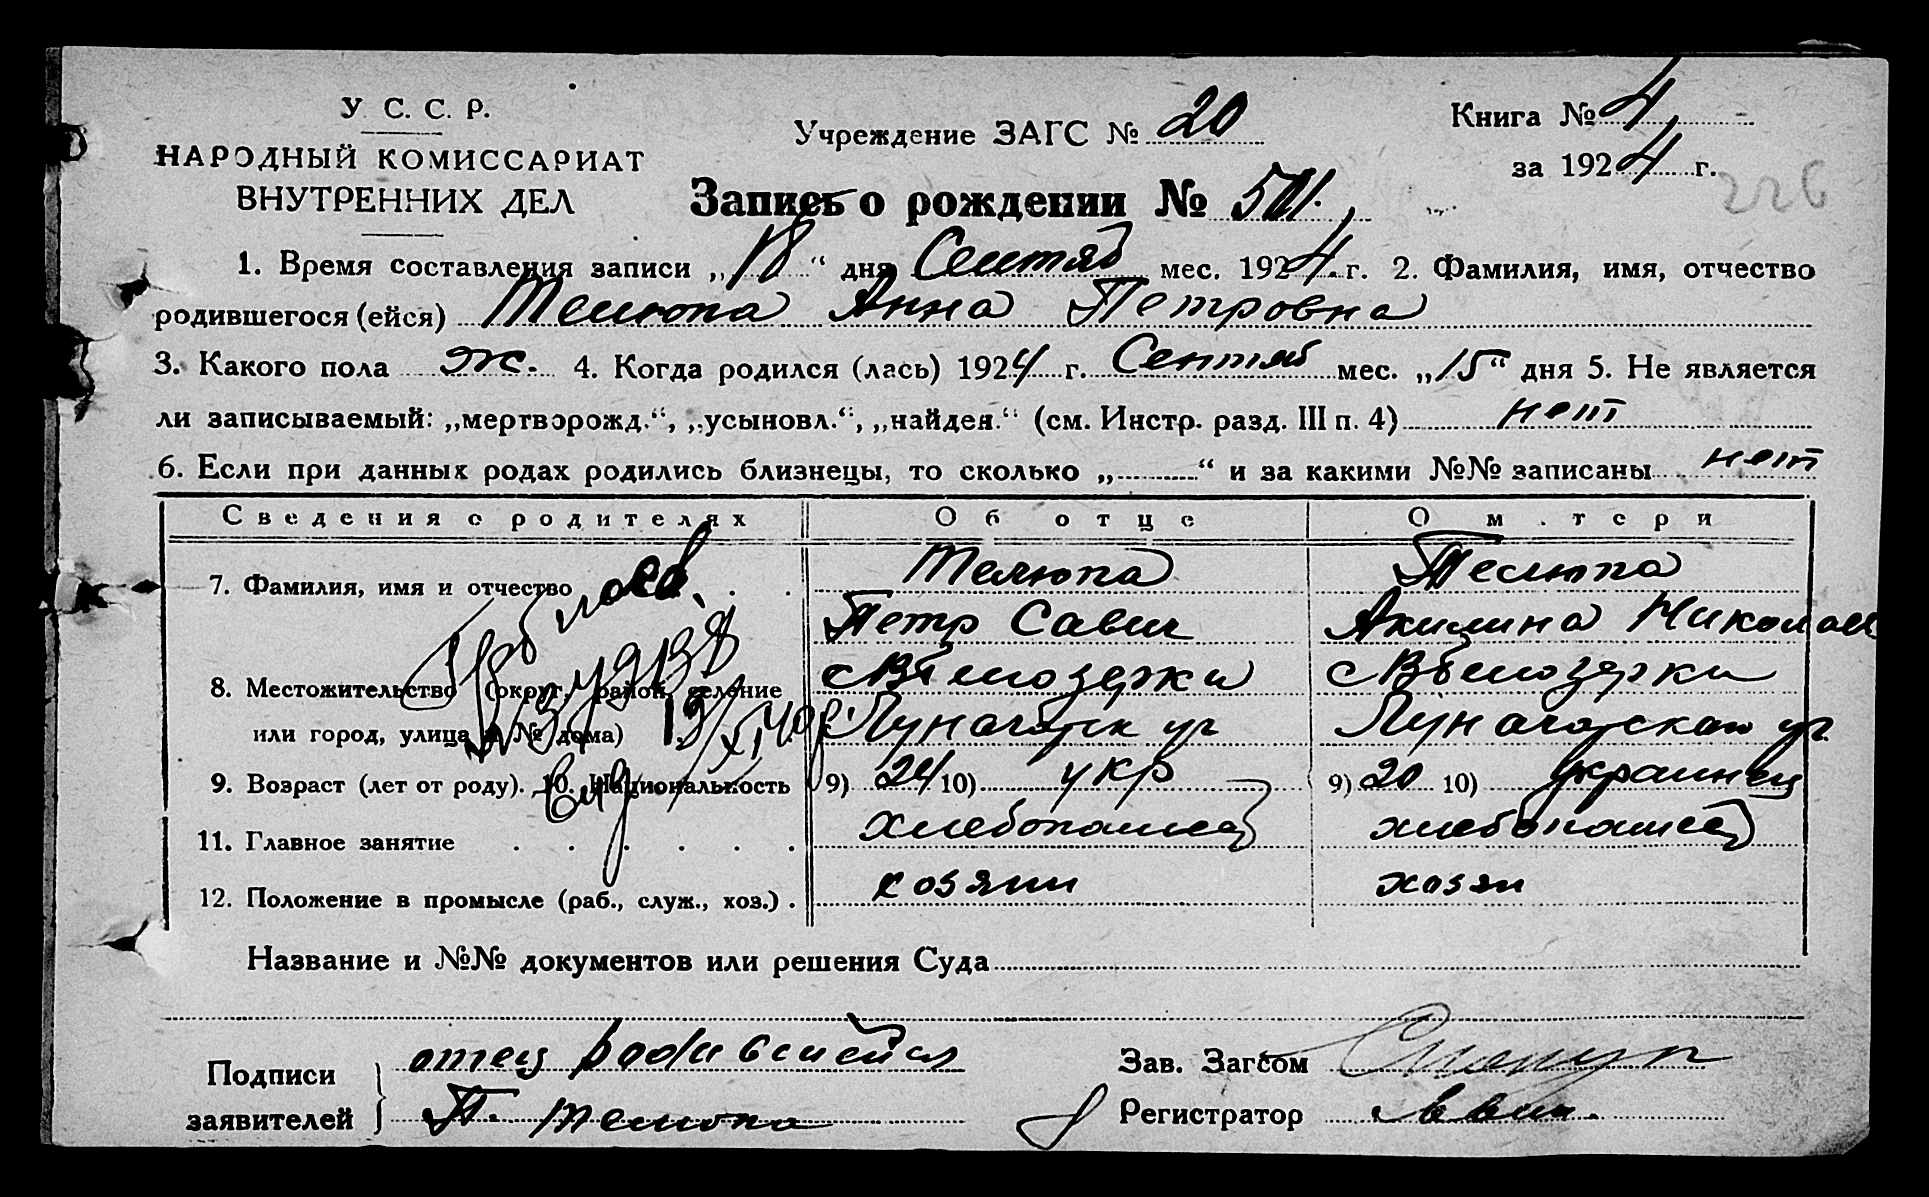 У. С. С. Р.
НАРОДНЫЙ КОМИССАРИАТ
ВНУТРЕННИХ ДЕЛ
Учреждение ЗАГС № 20
Книга № 4
за 1924 г.
226
Запись о рождении № 501.
1. Время составления записи „18“ дня Сентяб мес. 1924. г. 2. Фамилия, имя, отчество
родившегося (ейся) Телюпа Анна Петровна
3. Какого пола ж. 4. Когда родился (лась) 1924 г. Сентяб мес. „15“ дня 5. Не является
ли записываемый: „мертворожд.“, „усыновл.“, „найден.“ (см. Инстр. разд. III п. 4) нет
6. Если при данных родах родились близнецы, то сколько „ “ и за какими №№ записаны нет
Сведения о родителях Об отце О матери
7. Фамилия, имя и отчество Телюпа Телюпа
Петр Савич Акилина Николаев
8. Местожительство (округ, район, селение с Белозерки с Белозерки
или город, улица и № дома)
9. Возраст (лет от роду). 10. Национальность 9) 24 10) укр 9) 20 10) украинец
11. Главное занятие хлебопашец хлебопашец
12. Положение в промысле (раб., служ., хоз.) хозяин хозяи
Название и №№ документов или решения Суда
Подписи заявителей отец родившейся
П. Телюпа
Зав. Загсом
Регистратор